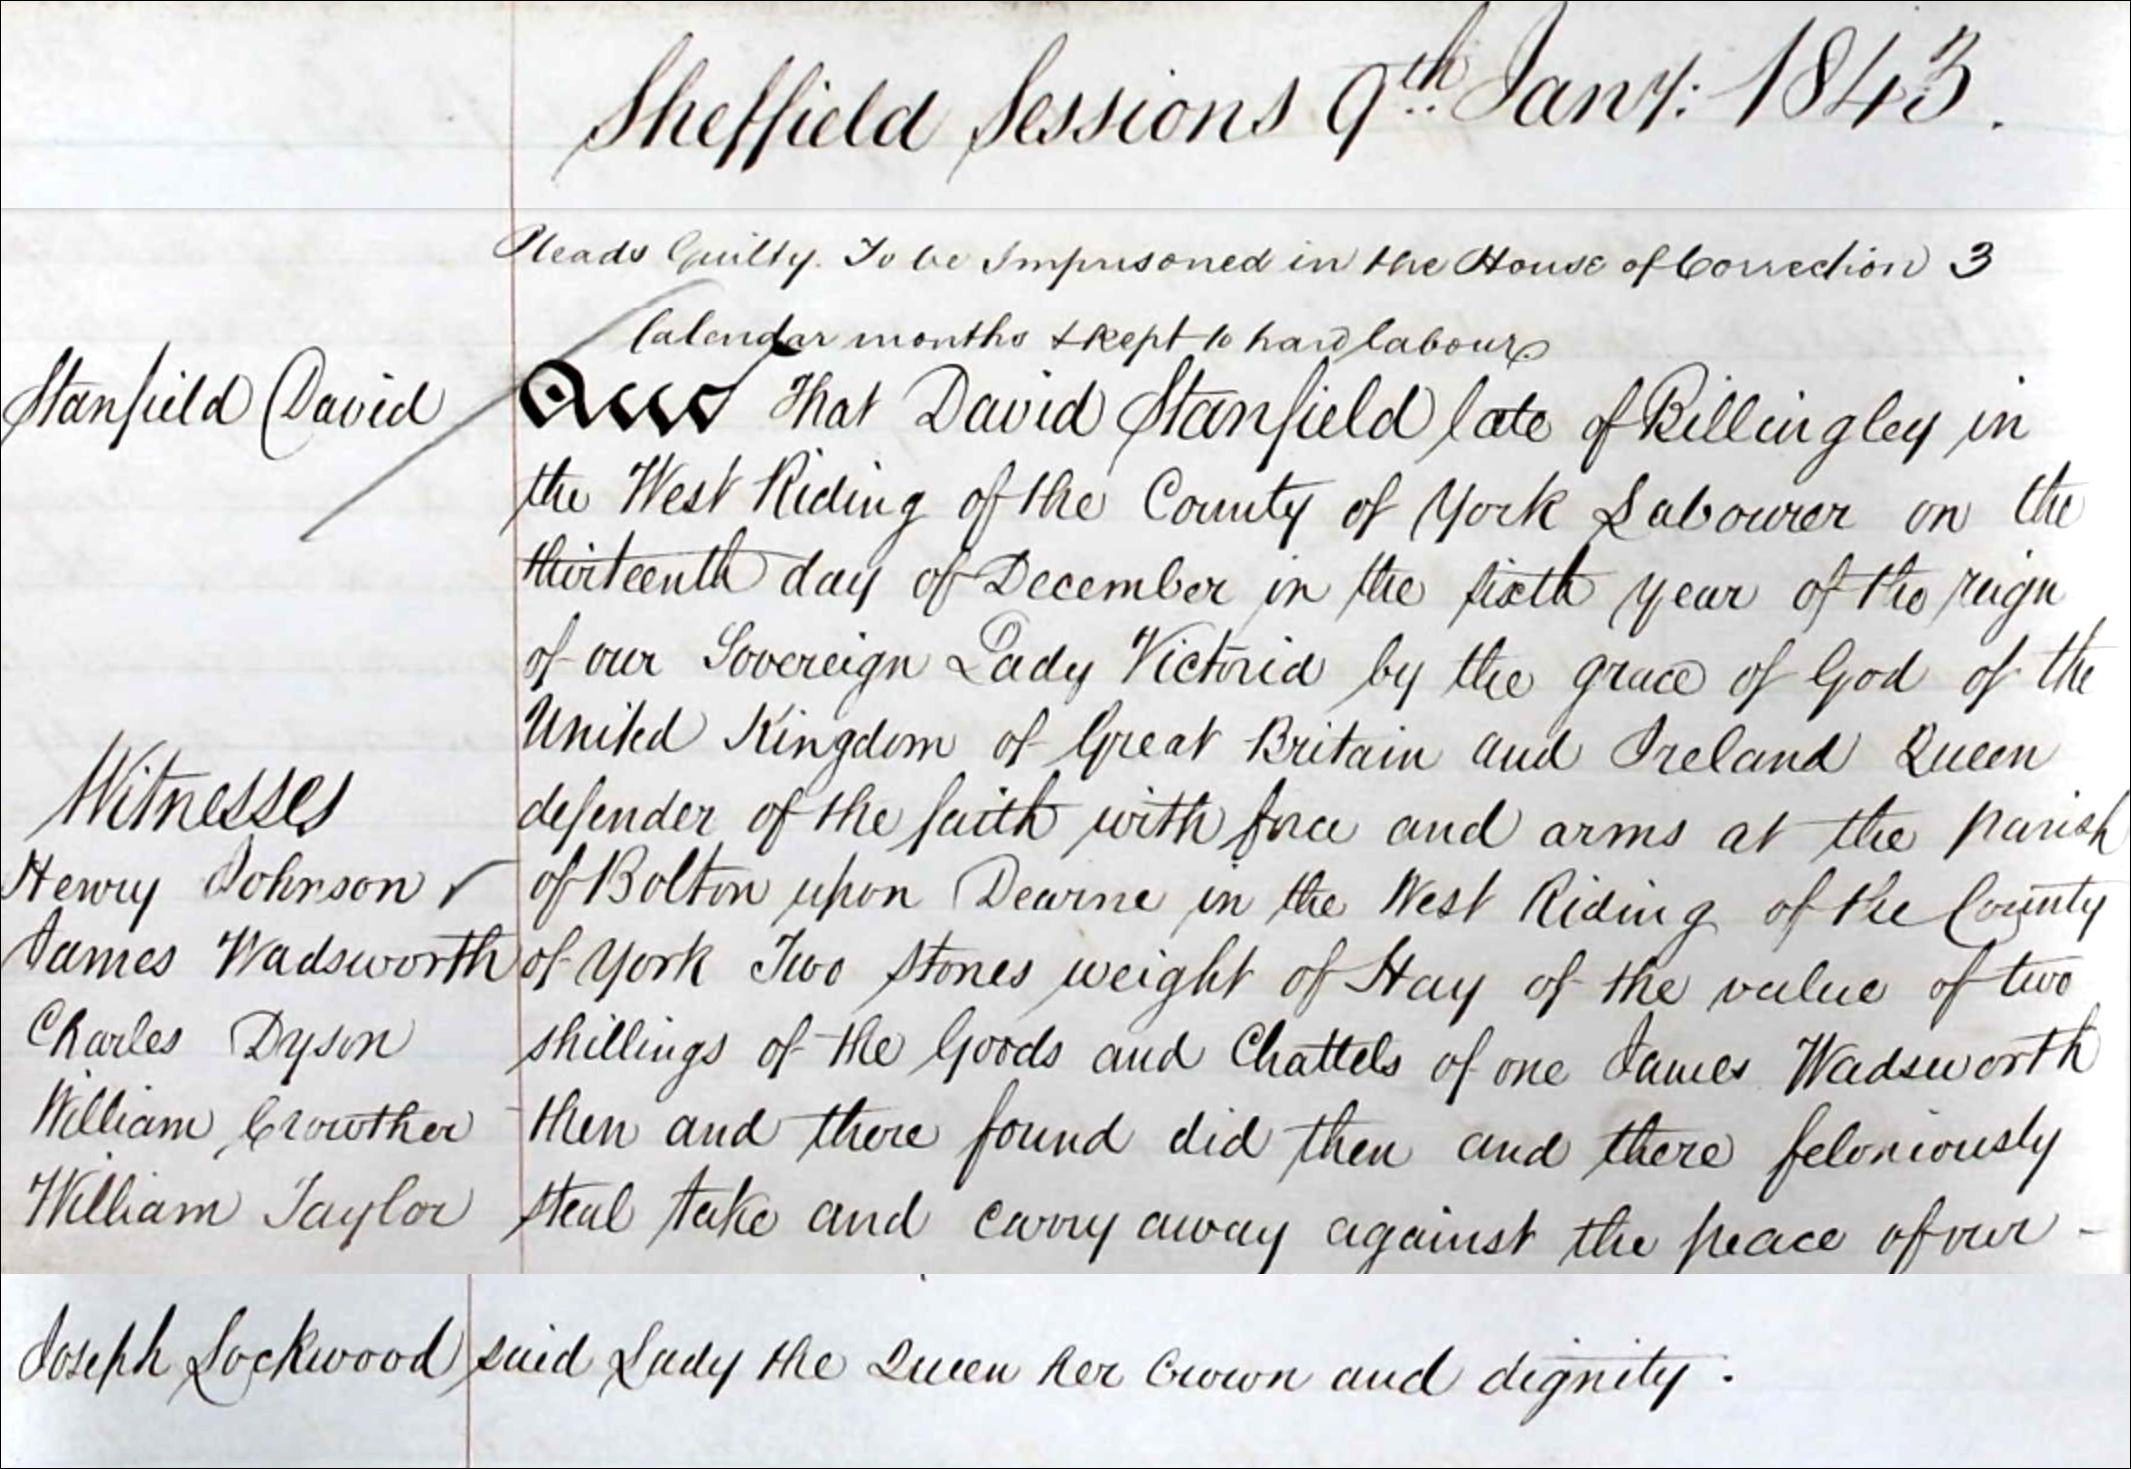 Sheffield Sessions 9th Jany: 1843.
Pleads Guilty. To be Imprisoned in the House of Correction 3
Calendar months & kept to hard labour
Stanfield David
That David Stanfield late of Billingley in
the West Riding of the County of York Labourer on the
thirteenth day of December in the sixth year of the reign
of our Sovereign Lady Victoria by the grace of God of the
United Kingdom of Great Britain and Ireland Queen
defender of the faith with force and arms at the parish
of Bolton upon Dearne in the West Riding of the County
of York Two stones weight of Hay of the value of two
shillings of the Goods and Chattels of one James Wadsworth
then and there found did then and there feloniously
steal take and carry away against the peace of our -
said Lady the Queen her Crown and dignity.
Witnesses
Henry Johnson ✓
James Wadsworth
Charles Dyson
William Crowther
William Taylor
Joseph Lockwood